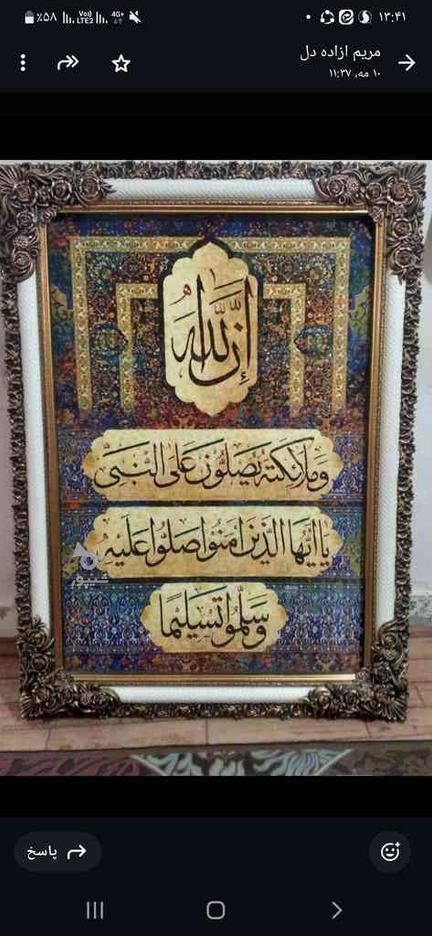 ۱۳:۴۱
4G+
Vo))
LTE2
٪۵۸
مریم ازاده دل
۱۰ مه، ۱۱:۳۷
إِنَّ اللَّهَ
وَمَلائِكَتَهُ يُصَلُّونَ عَلَى النَّبِي
يا أَيُّهَا الَّذينَ آمَنُوا صَلُّوا عَلَيْهِ
وَسَلِّمُوا تَسْلِيمًا
شیپور
پاسخ